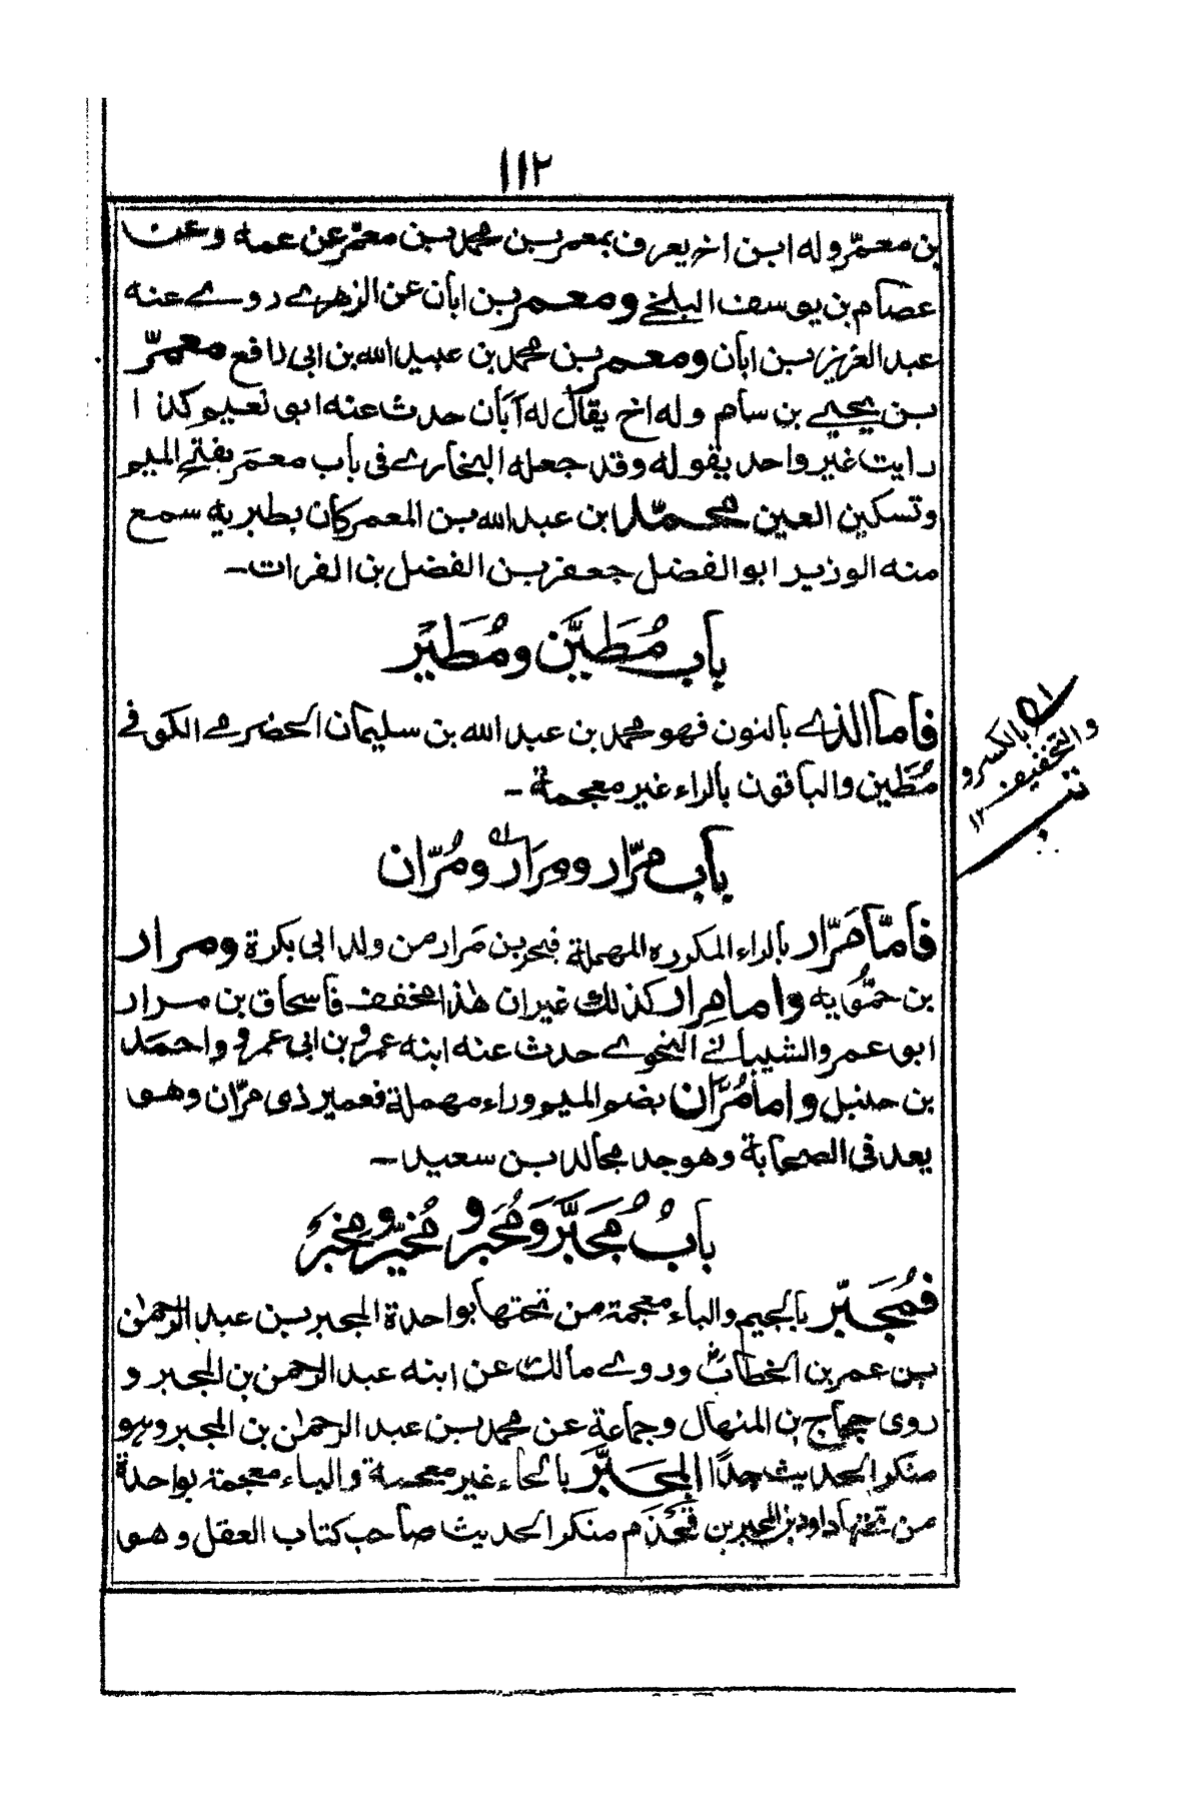 ١١٢
بن معمّر وله ابن اخ يعرف بمعمر بن محمد بن معمّر عن عمه وعن
عصام بن يوسف البلخي ومعمر بن ابان عن الزهرے روے عنه
عبد العزيز بن ابان ومعمر بن محمد بن عبيد الله بن ابی رافع معمّر
بن يحيے بن سام وله اخ يقال له أبان حدث عنه ابو نعيم كذا
رايت غير واحد يقوله وقد جعله البخارے فی باب معمَر بفتح الميم
وتسكين العين محمّد ابن عبد الله بن المعمر كان بطبرية سمع
منه الوزير ابو الفضل جعفر بن الفضل بن الفرات۔
باب مُطَيَّن ومُطَيَّر
فاما الذے بالنون فهو محمد بن عبد الله بن سليمان الحضرمے الكوفے
مُطَّين والباقون بالراء غير معجمة۔
باب مرّار ومرَار ومُرّان
فامّا مَرَّار بالراء المكرره المهملة فبحر بن مَرار من ولد ابی بكرة ومرار
بن حمّويه واما مِرار كذلك غير ان هذا مخفف فاسحاق بن مرار
ابو عمرو الشيبانے النحوے حدث عنه ابنه عمرو بن ابی عمرو واحمد
بن حنبل واما مُرَّان بضم الميم وراء مهملة فعمير ذی مرّان وهو
يعد فی الصحابة وهو جد مجالد بن سعيد۔
بابُ مُجَبَّر ومُحَبر و مُخَيّر ومخبر
فمُجَبّر بالجيم والباء معجمة من تحتها بواحدة المجبر بن عبد الرحمن
بن عمر بن الخطاب وروے مالك عن ابنه عبد الرحمن بن المجبر و
روی حجاج بن المنهال وجماعة عن محمد بن عبد الرحمن بن المجبر وهو
منكر الحديث جدًا المحَبَّر بالحاء غير معجمة والباء معجمة بواحدة
من تحتها داود بن المحبر بن قَحْذَم منكر الحديث صاحب كتاب العقل وهو
بالكسر و
والتخفيف
١٢